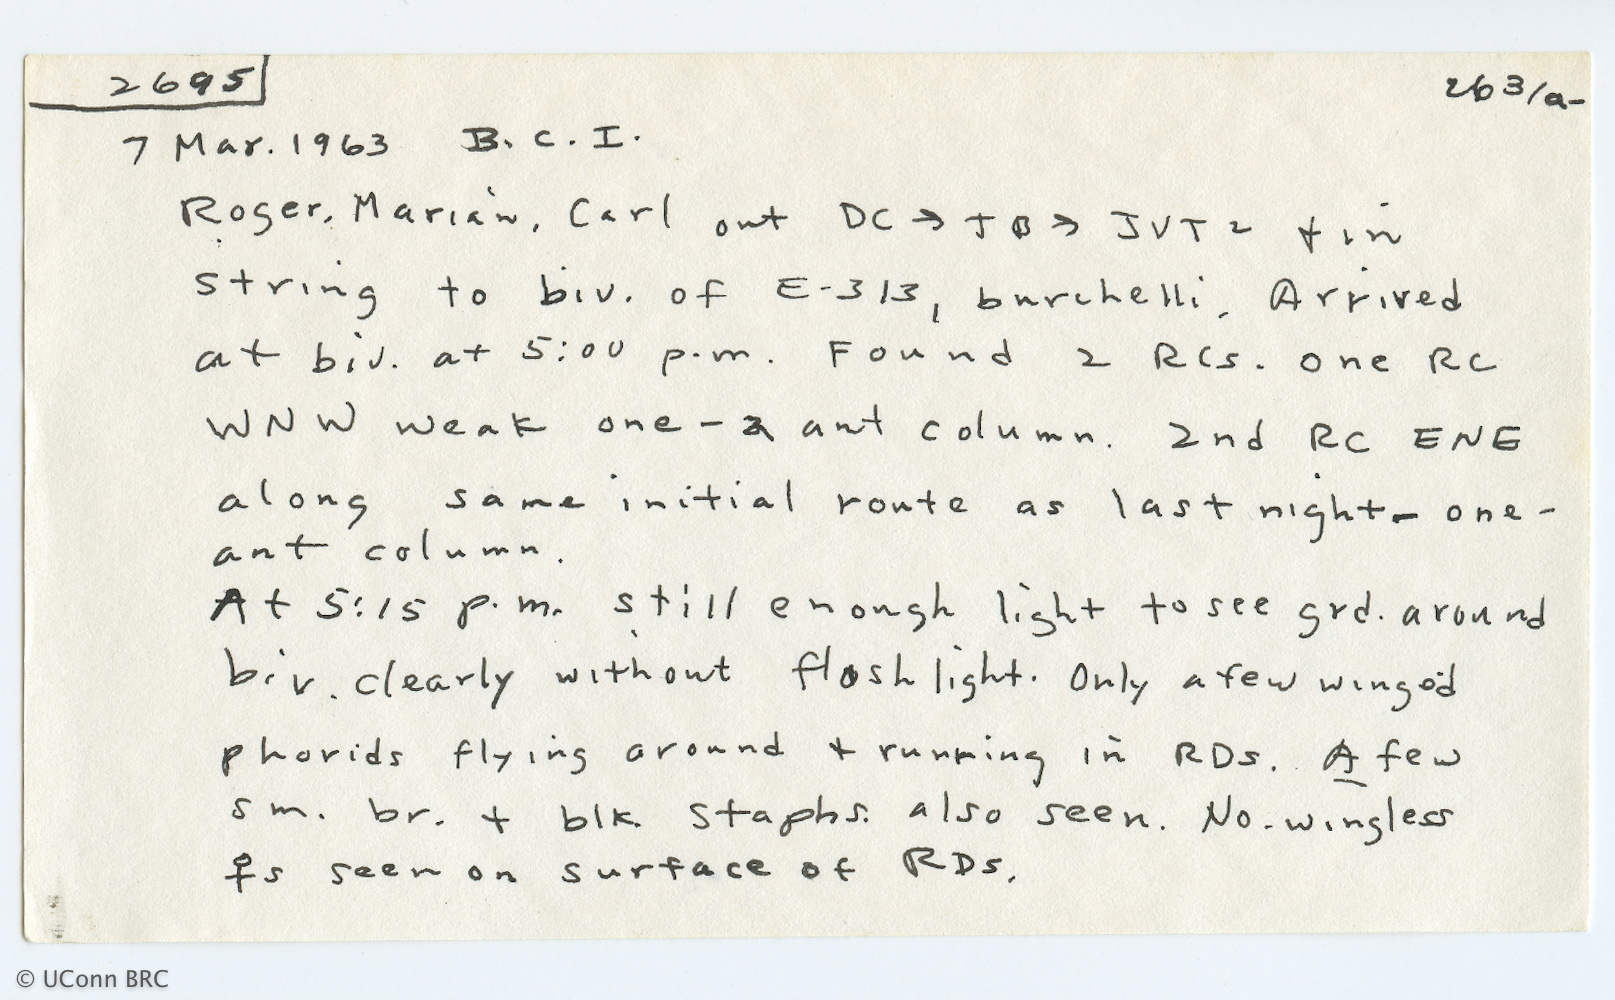 2695
263/a-
7 Mar. 1963 B. C. I.
Roger, Marian, Carl out DC → TB → JVT2 + in
string to biv. of E-313, burchelli. Arrived
at biv. at 5:00 p.m. Found 2 RCs. one RC
WNW weak one-2 ant column. 2nd RC ENE
along same initial route as last night - one-
ant column.
At 5:15 p.m. still enough light to see grd. around
biv. clearly without flashlight. Only a few winged
phorids flying around + running in RDs. A few
sm. br. + blk. staphs. also seen. No. wingless
♀s seen on surface of RDs.
© UConn BRC